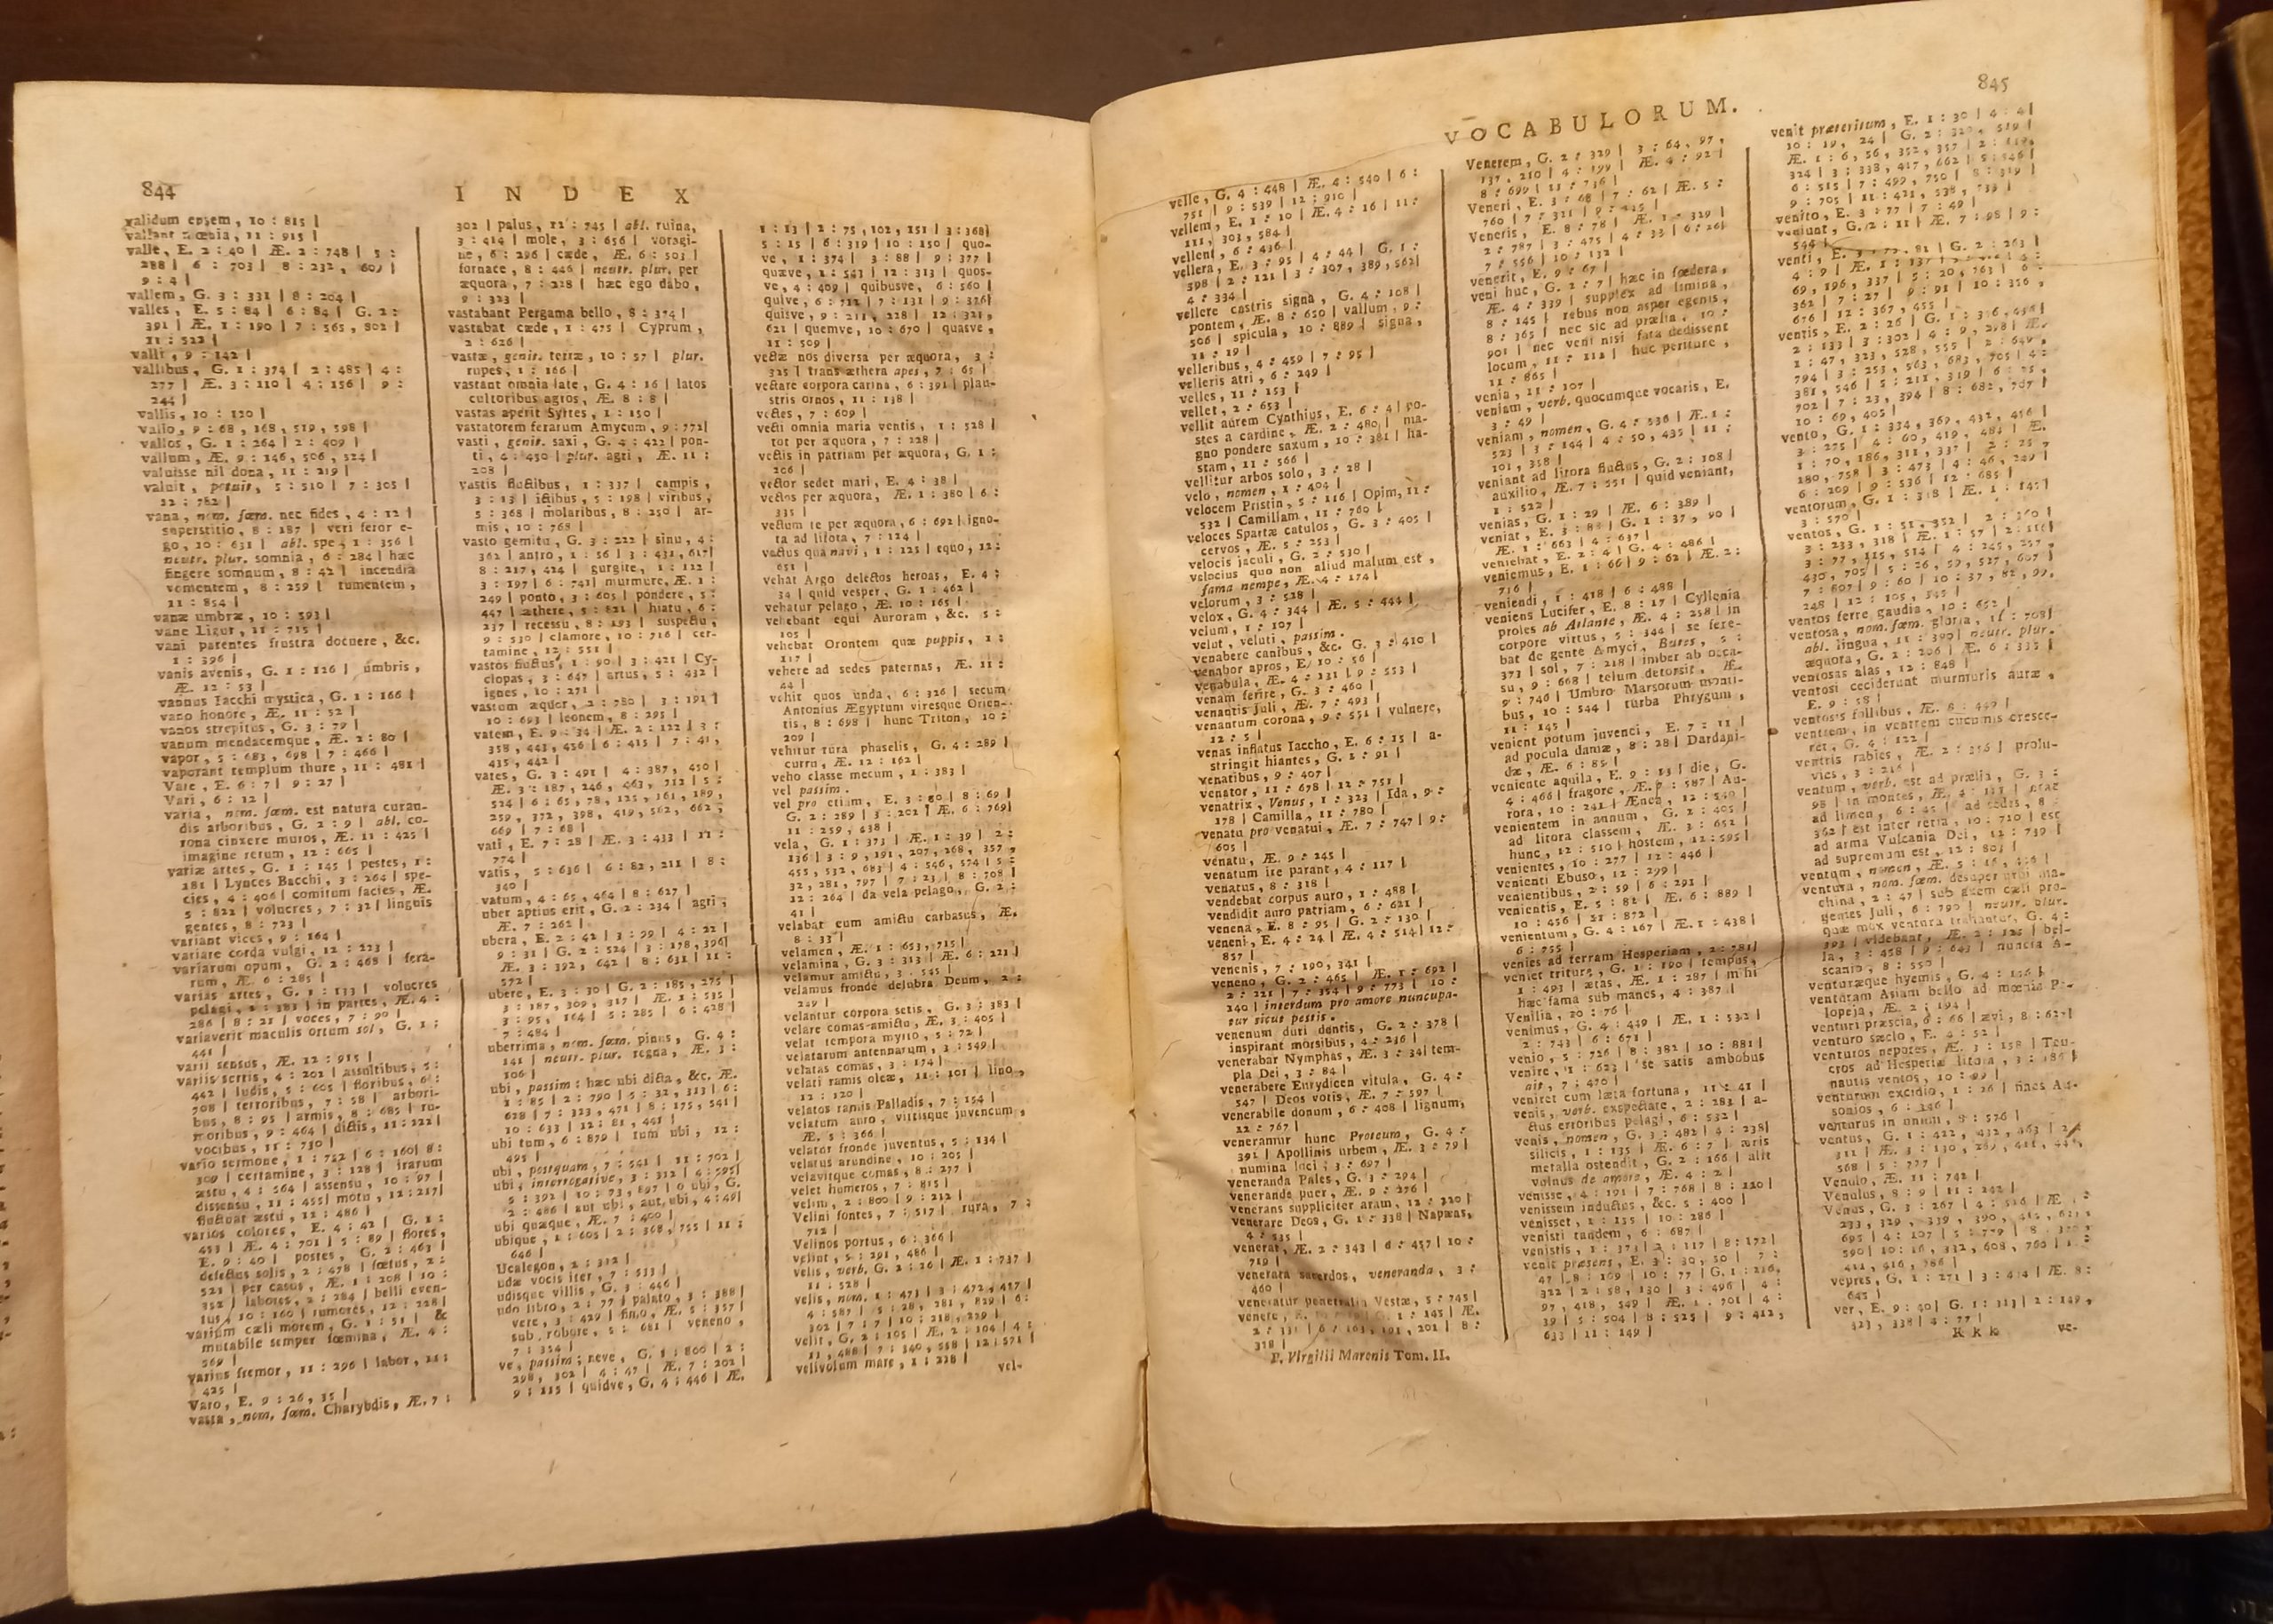 844
I N D E X
validum ensem, 10 : 815 |
vallant mœnia, 11 : 915 |
valle, E. 2 : 40 | Æ. 2 : 748 | 5 :
288 | 6 : 703 | 8 : 232, 609 |
9 : 4 |
vallem, G. 3 : 331 | 8 : 204 |
valles, E. 5 : 84 | 6 : 84 | G. 2 :
391 | Æ. 1 : 190 | 7 : 565, 802 |
11 : 522 |
valli, 9 : 142 |
vallibus, G. 1 : 374 | 2 : 485 | 4 :
277 | Æ. 3 : 110 | 4 : 156 | 9 :
244 |
vallis, 10 : 120 |
vallo, 9 : 68, 168, 519, 598 |
vallos, G. 1 : 264 | 2 : 409 |
vallum, Æ. 9 : 146, 506, 524 |
valuisse nil dona, 11 : 219 |
valuit, potuit, 5 : 510 | 7 : 305 |
12 : 782 |
vana, nom. fœm. nec fides, 4 : 12 |
superstitio, 8 : 187 | veri feror e-
go, 10 : 631 | abl. spe, 1 : 356 |
neutr. plur. somnia, 6 : 284 | hæc
fingere somnum, 8 : 42 | incendia
vomentem, 8 : 259 | tumentem,
11 : 854 |
vanæ umbræ, 10 : 593 |
vane Ligur, 11 : 715 |
vani parentes frustra docuere, &c.
1 : 396 |
vanis avenis, G. 1 : 226 | umbris,
Æ. 12 : 53 |
vannus Iacchi mystica, G. 1 : 166 |
vano honore, Æ. 11 : 52 |
vanos strepitus, G. 3 : 79 |
vanum mendacemque, Æ. 2 : 80 |
vapor, 5 : 683, 698 | 7 : 466 |
vaporant templum thure, 11 : 481 |
Vare, E. 6 : 7 | 9 : 27 |
Vari, 6 : 12 |
varia, nom. fœm. est natura curan-
dis arboribus, G. 2 : 9 | abl. co-
rona cinxere muros, Æ. 11 : 425 |
imagine rerum, 12 : 665 |
variæ artes, G. 1 : 145 | pestes, 1 :
181 | Lynces Bacchi, 3 : 264 | spe-
cies, 4 : 406 | comitum facies, Æ.
5 : 822 | volucres, 7 : 32 | linguis
gentes, 8 : 723 |
variant vices, 9 : 164 |
variare corda vulgi, 12 : 223 |
variarum opum, G. 2 : 468 | fera-
rum, Æ. 6 : 285 |
varias artes, G. 1 : 133 | volucres
pelagi, 1 : 383 | in partes, Æ. 4 :
286 | 8 : 21 | voces, 7 : 90 |
variaverit maculis ortum sol, G. 1 :
441 |
varii sensus, Æ. 12 : 915 |
variis sertis, 4 : 202 | assultibus, 5 :
442 | ludis, 5 : 605 | floribus, 6 :
708 | terroribus, 7 : 58 | arbori-
bus, 8 : 95 | armis, 8 : 685 | ru-
moribus, 9 : 464 | dictis, 11 : 222 |
vocibus, 11 : 730 |
vario sermone, 1 : 752 | 6 : 160 | 8 :
309 | certamine, 3 : 128 | irarum
æstu, 4 : 564 | assensu, 10 : 97 |
dissensu, 11 : 455 | motu, 12 : 217 |
fluctuat æstu, 12 : 486 |
varios colores, E. 4 : 42 | G. 1 :
452 | Æ. 4 : 701 | 5 : 89 | flores,
E. 9 : 40 | postes, G. 2 : 463 |
defectus solis, 2 : 478 | fœtus, 2 :
521 | per casus, Æ. 1 : 208 | 10 :
352 | labores, 2 : 284 | belli even-
tus, 10 : 160 | rumores, 12 : 228 |
varium cæli morem, G. 1 : 51 | &
mutabile semper fœmina, Æ. 4 :
569 |
varius fremor, 11 : 296 | labor, 11 :
425 |
Varo, E. 9 : 26, 35 |
vasta, nom. fœm. Charybdis, Æ. 7 :
302 | palus, 12 : 745 | abl. ruina,
3 : 414 | mole, 3 : 656 | voragi-
ne, 6 : 296 | cæde, Æ. 6 : 503 |
fornace, 8 : 446 | neutr. plur. per
æquora, 7 : 228 | hæc ego dabo,
9 : 323 |
vastabant Pergama bello, 8 : 374 |
vastabat cæde, 1 : 475 | Cyprum,
2 : 626 |
vastæ, genit. terræ, 10 : 57 | plur.
rupes, 1 : 166 |
vastant omnia late, G. 4 : 16 | latos
cultoribus agros, Æ. 8 : 8 |
vastas aperit Syrtes, 1 : 150 |
vastatorem ferarum Amycum, 9 : 772 |
vasti, genit. saxi, G. 4 : 422 | pon-
ti, 4 : 430 | plur. agri, Æ. 11 :
208 |
vastis fluctibus, 1 : 337 | campis,
3 : 13 | ictibus, 5 : 198 | viribus,
5 : 368 | molaribus, 8 : 250 | ar-
mis, 10 : 768 |
vasto gemitu, G. 3 : 222 | sinu, 4 :
362 | antro, 1 : 56 | 3 : 431, 617 |
8 : 217, 424 | gurgite, 1 : 122 |
3 : 197 | 6 : 741 | murmure, Æ. 1 :
249 | ponto, 3 : 605 | pondere, 5 :
447 | æthere, 5 : 821 | hiatu, 6 :
237 | recessu, 8 : 193 | suspectu,
9 : 530 | clamore, 10 : 716 | cer-
tamine, 12 : 551 |
vastos fluctus, 1 : 90 | 3 : 421 | Cy-
clopas, 3 : 647 | artus, 5 : 432 |
ignes, 10 : 271 |
vastum æquor, 2 : 780 | 3 : 191 |
10 : 693 | leonem, 8 : 295 |
vatem, E. 9 : 34 | Æ. 2 : 122 | 3 :
358, 443, 456 | 6 : 415 | 7 : 41,
435, 442 |
vates, G. 3 : 491 | 4 : 387, 450 |
Æ. 3 : 187, 246, 463, 712 | 5 :
524 | 6 : 65, 78, 125, 161, 189,
259, 372, 398, 419, 562, 662,
669 | 7 : 68 |
vati, E. 7 : 28 | Æ. 3 : 433 | 11 :
774 |
vatis, 5 : 636 | 6 : 82, 211 | 8 :
340 |
vatum, 4 : 65, 464 | 8 : 627 |
uber aptius erit, G. 2 : 234 | agri,
Æ. 7 : 262 |
ubera, E. 2 : 42 | 3 : 99 | 4 : 22 |
9 : 31 | G. 2 : 524 | 3 : 178, 396 |
Æ. 3 : 392, 642 | 8 : 631 | 11 :
572 |
ubere, E. 3 : 30 | G. 2 : 185, 275 |
3 : 187, 309, 317 | Æ. 1 : 535 |
3 : 95, 164 | 5 : 285 | 6 : 428 |
7 : 484 |
uberrima, nom. fœm. pinus, G. 4 :
141 | neutr. plur. regna, Æ. 3 :
106 |
ubi, passim : hæc ubi dicta, &c. Æ.
1 : 85 | 2 : 790 | 5 : 32, 315 | 6 :
628 | 7 : 323, 471 | 8 : 175, 541 |
10 : 633 | 12 : 81, 441 |
ubi tum, 6 : 879 | tum ubi, 12 :
495 |
ubi, postquam, 7 : 541 | 11 : 702 |
ubi, interrogative, 3 : 312 | 4 : 595 |
5 : 392 | 10 : 73, 897 | o ubi, G.
2 : 486 | aut ubi, aut, ubi, 4 : 49 |
ubi quæque, Æ. 7 : 400 |
ubique, 1 : 605 | 2 : 368, 755 | 11 :
646 |
Ucalegon, 2 : 312 |
udæ vocis iter, 7 : 533 |
udisque villis, G. 3 : 446 |
udo libro, 2 : 77 | palato, 3 : 388 |
vere, 3 : 429 | fino, Æ. 5 : 357 |
sub robore, 5 : 681 | veneno,
7 : 354 |
ve, passim; neve, G. 1 : 800 | 2 :
298, 302 | 4 : 47 | Æ. 7 : 202 |
9 : 115 | quidve, G. 4 : 446 | Æ.
1 : 13 | 2 : 75, 102, 151 | 3 : 368 |
5 : 15 | 6 : 319 | 10 : 150 | quo-
ve, 1 : 374 | 3 : 88 | 9 : 377 |
quæve, 1 : 543 | 12 : 313 | quos-
ve, 4 : 409 | quibusve, 6 : 560 |
quive, 6 : 712 | 7 : 131 | 9 : 376 |
quisve, 9 : 211, 228 | 12 : 321,
621 | quemve, 10 : 670 | quasve,
11 : 509 |
vectæ nos diversa per æquora, 3 :
325 | trans æthera apes, 7 : 65 |
vectare corpora carina, 6 : 391 | plau-
stris ornos, 11 : 138 |
vectes, 7 : 609 |
vecti omnia maria ventis, 1 : 528 |
tot per æquora, 7 : 228 |
vectis in patriam per æquora, G. 1 :
206 |
vector sedet mari, E. 4 : 38 |
vectos per æquora, Æ. 1 : 380 | 6 :
335 |
vectum te per æquora, 6 : 692 | igno-
ta ad litora, 7 : 124 |
vectus qua navi, 1 : 125 | equo, 12 :
651 |
vehat Argo delectos heroas, E. 4 :
34 | quid vesper, G. 1 : 462 |
vehatur pelago, Æ. 10 : 165 |
vehebant equi Auroram, &c. 5 :
105 |
vehebat Orontem quæ puppis, 1 :
117 |
vehere ad sedes paternas, Æ. 11 :
44 |
vehit quos unda, 6 : 326 | secum
Antonius Ægyptum viresque Orien-
tis, 8 : 698 | hunc Triton, 10 :
209 |
vehitur rura phaselis, G. 4 : 289 |
curru, Æ. 12 : 162 |
veho classe mecum, 1 : 383 |
vel passim.
vel pro etiam, E. 3 : 80 | 8 : 69 |
G. 2 : 289 | 3 : 202 | Æ. 6 : 769 |
11 : 259, 438 |
vela, G. 1 : 373 | Æ. 1 : 39 | 2 :
136 | 3 : 9, 191, 207, 268, 357,
455, 532, 683 | 4 : 546, 574 | 5 :
32, 281, 797 | 7 : 23 | 8 : 708 |
12 : 264 | da vela pelago, G. 2 :
41 |
velabat cum amictu carbasus, Æ.
8 : 33 |
velamen, Æ. 1 : 653, 715 |
velamina, G. 3 : 313 | Æ. 6 : 221 |
velamur amictu, 3 : 545 |
velamus fronde delubra Deum, 2 :
249 |
velantur corpora setis, G. 3 : 383 |
velare comas amictu, Æ. 3 : 405 |
velat tempora myrto, 5 : 72 |
velatarum antennarum, 3 : 549 |
velatas comas, 3 : 174 |
velati ramis oleæ, 11 : 101 | lino,
12 : 120 |
velatos ramis Palladis, 7 : 154 |
velatum auro, vittisque juvencum,
Æ. 5 : 366 |
velatur fronde juventus, 5 : 134 |
velatus arundine, 10 : 205 |
velavitque comas, 8 : 277 |
velet humeros, 7 : 815 |
velim, 2 : 800 | 9 : 212 |
Velini fontes, 7 : 517 | rura, 7 :
712 |
Velinos portus, 6 : 366 |
velint, 5 : 291, 486 |
velis, verb. G. 2 : 26 | Æ. 1 : 737 |
11 : 528 |
velis, nom. 1 : 473 | 3 : 472, 457 |
4 : 587 | 5 : 28, 281, 829 | 6 :
302 | 7 : 7 | 10 : 218, 229 |
velit, G. 2 : 105 | Æ. 2 : 104 | 4 :
11, 488 | 7 : 340, 558 | 12 : 571 |
velivolum mare, 1 : 228 |
vel-
845
VOCABULORUM.
velle, G. 4 : 448 | Æ. 4 : 540 | 6 :
751 | 9 : 539 | 12 : 910 |
vellem, E. 1 : 10 | Æ. 4 : 16 | 11 :
111, 303, 584 |
vellent, 6 : 436 |
vellera, E. 3 : 95 | 4 : 44 | G. 1 :
398 | 2 : 121 | 3 : 307, 389, 562 |
4 : 334 |
vellere castris signa, G. 4 : 108 |
pontem, Æ. 8 : 650 | vallum, 9 :
506 | spicula, 10 : 889 | signa,
11 : 19 |
velleribus, 4 : 459 | 7 : 95 |
velleris atri, 6 : 249 |
velles, 11 : 153 |
vellet, 2 : 653 |
vellit aurem Cynthius, E. 6 : 4 | po-
stes a cardine, Æ. 2 : 480 | ma-
gno pondere saxum, 10 : 381 | ha-
stam, 11 : 566 |
vellitur arbos solo, 3 : 28 |
velo, nomen, 1 : 404 |
velocem Pristin, 5 : 116 | Opim, 11 :
532 | Camillam, 11 : 760 |
veloces Spartæ catulos, G. 3 : 405 |
cervos, Æ. 5 : 253 |
velocis jaculi, G. 2 : 530 |
velocius quo non aliud malum est,
fama nempe, Æ. 4 : 174 |
velorum, 3 : 528 |
velox, G. 4 : 344 | Æ. 5 : 444 |
velum, 1 : 107 |
velut, veluti, passim.
venabere canibus, &c. G. 3 : 410 |
venabor apros, E. 10 : 56 |
venabula, Æ. 4 : 131 | 9 : 553 |
venam ferire, G. 3 : 460 |
venantis Juli, Æ. 7 : 493 |
venantum corona, 9 : 551 | vulnere,
12 : 5 |
venas inflatus Iaccho, E. 6 : 15 | a-
stringit hiantes, G. 1 : 91 |
venatibus, 9 : 407 |
venator, 11 : 678 | 12 : 751 |
venatrix, Venus, 1 : 323 | Ida, 9 :
178 | Camilla, 11 : 780 |
venatu pro venatui, Æ. 7 : 747 | 9 :
605 |
venatu, Æ. 9 : 245 |
venatum ire parant, 4 : 117 |
venatus, 8 : 318 |
vendebat corpus auro, 1 : 488 |
vendidit auro patriam, 6 : 621 |
venena, E. 8 : 95 | G. 2 : 130 |
veneni, E. 4 : 24 | Æ. 4 : 514 | 12 :
857 |
venenis, 7 : 190, 341 |
veneno, G. 2 : 465 | Æ. 1 : 692 |
2 : 221 | 7 : 354 | 9 : 773 | 10 :
140 | interdum pro amore nuncupa-
tur sicut pestis.
venenum duri dentis, G. 2 : 378 |
inspirant morsibus, 4 : 236 |
venerabar Nymphas, Æ. 3 : 34 | tem-
pla Dei, 3 : 84 |
venerabere Eurydicen vitula, G. 4 :
547 | Deos votis, Æ. 7 : 597 |
venerabile donum, 6 : 408 | lignum,
12 : 767 |
veneramur hunc Proteum, G. 4 :
391 | Apollinis urbem, Æ. 3 : 79 |
numina loci, 3 : 697 |
veneranda Pales, G. 3 : 294 |
venerande puer, Æ. 9 : 276 |
venerans suppliciter aram, 12 : 220 |
venerare Deos, G. 1 : 338 | Napæas,
4 : 535 |
venerat, Æ. 2 : 343 | 6 : 457 | 10 :
719 |
venerata sacerdos, veneranda, 3 :
460 |
veneratur penetralia Vestæ, 5 : 745 |
318 |
P. Virgilii Maronis Tom. II.
Venerem, G. 2 : 329 | 3 : 64, 97,
137, 210 | 4 : 199 | Æ. 4 : 92 |
8 : 699 | 11 : 736 |
Veneri, E. 3 : 68 | 7 : 62 | Æ. 5 :
760 | 7 : 321 | 9 : 135 |
Veneris, E. 8 : 78 | Æ. 1 : 329 |
2 : 787 | 3 : 475 | 4 : 33 | 6 : 26 |
7 : 556 | 10 : 132 |
venerit, E. 9 : 67 |
veni huc, G. 2 : 7 | hæc in fœdera,
Æ. 4 : 339 | supplex ad limina,
8 : 145 | rebus non asper egenis,
8 : 365 | nec sic ad prælia, 10 :
901 | nec veni nisi fata dedissent
locum, 11 : 112 | huc periture,
11 : 865 |
venia, 11 : 107 |
veniam, verb. quocumque vocaris, E.
3 : 49 |
veniam, nomen, G. 4 : 536 | Æ. 1 :
523 | 3 : 144 | 4 : 50, 435 | 11 :
101, 358 |
veniant ad litora fluctus, G. 2 : 108 |
auxilio, Æ. 7 : 551 | quid veniant,
1 : 522 |
venias, G. 1 : 29 | Æ. 6 : 389 |
veniat, E. 3 : 88 | G. 1 : 37, 90 |
Æ. 1 : 663 | 4 : 637 |
veniebat, E. 2 : 4 | G. 4 : 486 |
veniemus, E. 1 : 66 | 9 : 62 | Æ. 2 :
716 |
veniendi, 1 : 418 | 6 : 488 |
veniens Lucifer, E. 8 : 17 | Cyllenia
proles ab Atlante, Æ. 4 : 258 | in
corpore virtus, 5 : 344 | se fere-
bat de gente Amyci, Butes, 5 :
373 | sol, 7 : 218 | imber ab occa-
su, 9 : 668 | telum detorsit, Æ.
9 : 746 | Umbro Marsorum monti-
bus, 10 : 544 | turba Phrygum,
11 : 145 |
venient potum juvenci, E. 7 : 11 |
ad pocula damæ, 8 : 28 | Dardani-
dæ, Æ. 6 : 85 |
veniente aquila, E. 9 : 13 | die, G.
4 : 466 | fragore, Æ. 2 : 587 | Au-
rora, 10 : 241 | Ænea, 12 : 540 |
venientem in annum, G. 2 : 405 |
ad litora classem, Æ. 3 : 652 |
hunc, 12 : 510 | hostem, 12 : 595 |
venientes, 10 : 277 | 12 : 446 |
venienti Ebuso, 12 : 299 |
venientibus, 2 : 59 | 6 : 291 |
venientis, E. 5 : 82 | Æ. 6 : 889 |
10 : 456 | 11 : 872 |
venientum, G. 4 : 167 | Æ. 1 : 438 |
6 : 755 |
venies ad terram Hesperiam, 2 : 781 |
veniet tritura, G. 1 : 190 | tempus,
1 : 493 | ætas, Æ. 1 : 287 | mihi
hæc fama sub manes, 4 : 387 |
Venilia, 10 : 76 |
venimus, G. 4 : 449 | Æ. 1 : 532 |
2 : 743 | 6 : 671 |
venio, 5 : 726 | 8 : 382 | 10 : 881 |
venire, 1 : 623 | se satis ambobus
ait, 7 : 470 |
veniret cum læta fortuna, 11 : 41 |
venis, verb. exspectate, 2 : 283 | a-
ctus erroribus pelagi, 6 : 532 |
venis, nomen, G. 3 : 482 | 4 : 238 |
silicis, 1 : 135 | Æ. 6 : 7 | æris
metalla ostendit, G. 2 : 166 | alit
volnus de amore, Æ. 4 : 2 |
venisse, 4 : 191 | 7 : 768 | 8 : 120 |
venissem indutus, &c. 5 : 400 |
venisset, 1 : 135 | 10 : 286 |
venisti tandem, 6 : 687 |
venistis, 1 : 373 | 2 : 117 | 8 : 172 |
venit præsens, E. 3 : 30, 50 | 7 :
47 | 8 : 109 | 10 : 77 | G. 1 : 216,
322 | 2 : 58, 130 | 3 : 496 | 4 :
97, 418, 549 | Æ. 1 : 701 | 4 :
19 | 5 : 504 | 8 : 525 | 9 : 412,
633 | 11 : 149 |
venit præteritum, E. 1 : 30 | 4 : 4 |
Æ. 1 : 6, 56, 352, 357 |
324 | 3 : 338, 417, 662 | 5 : 346 |
6 : 515 | 7 : 499, 750 | 8 : 319 |
9 : 705 | 11 : 421, 538, 739 |
venito, E. 3 : 77 | 7 : 49 |
veniunt, G. 2 : 11 | Æ. 7 : 98 | 9 :
544 |
69, 196, 337 | 5 : 20, 763 | 6 :
362 | 7 : 27 | 9 : 91 | 10 : 356,
676 | 12 : 367, 455 |
1 : 47, 323, 528, 555 |
794 | 3 : 253, 563, 683, 705 | 4 :
10 : 69, 405 |
vento, G. 1 : 334, 369, 432, 456 |
1 : 70, 186, 311, 337 |
180, 758 | 3 : 473 | 4 : 46, 249 |
6 : 209 | 9 : 536 | 12 : 685 |
3 : 570 |
ventos ferre gaudia, 10 : 652 |
ventosa, nom. fœm. gloria, 11 : 708 |
abl. lingua, 11 : 390 | neutr. plur.
æquora, G. 1 : 206 | Æ. 6 : 335 |
ventosas alas, 12 : 848 |
ventosi ceciderunt murmuris auræ,
E. 9 : 58 |
ventosis follibus, Æ. 8 : 449 |
ventrem, in ventrem cucumis cresce-
ret, G. 4 : 122 |
ventris rabies, Æ. 2 : 356 | prolu-
vies, 3 : 216 |
ventum, verb. est ad prælia, G. 3 :
ad limen, 6 : 45 | ad sedes, 8 :
362 | est inter retia, 10 : 710 | est
ad arma Vulcania Dei, 12 : 739 |
ad supremum est, 12 : 803 |
ventura, nom. fœm. desuper urbi ma-
china, 2 : 47 | sub axem cæli pro-
genies Juli, 6 : 790 | neutr. plur.
quæ mox ventura trahantur, G. 4 :
393 | videbant, Æ. 2 : 125 | bel-
la, 3 : 458 | 9 : 643 | nuncia A-
scanio, 8 : 550 |
venturæque hyemis, G. 4 : 156 |
venturam Asiam bello ad mœnia Pe-
lopeja, Æ. 2 : 194 |
venturi præscia, 6 : 66 | ævi, 8 : 627 |
venturo sæclo, E. 4 : 52 |
venturos nepotes, Æ. 3 : 158 | Teu-
cros ad Hesperiæ litora, 3 : 186 |
nautis ventos, 10 : 99 |
venturum excidio, 1 : 26 | fines Au-
sonios, 6 : 346 |
venturus in unum, 8 : 576 |
ventus, G. 1 : 422, 432, 463 |
568 | 5 : 777 |
Venulo, Æ. 11 : 742 |
Venulus, 8 : 9 | 11 : 242 |
411, 416, 786 |
vepres, G. 1 : 271 | 3 : 444 | Æ. 8 :
645 |
ver, E. 9 : 40 | G. 1 : 313 | 2 : 149,
323, 338 | 4 : 77 |
K k k
ve-